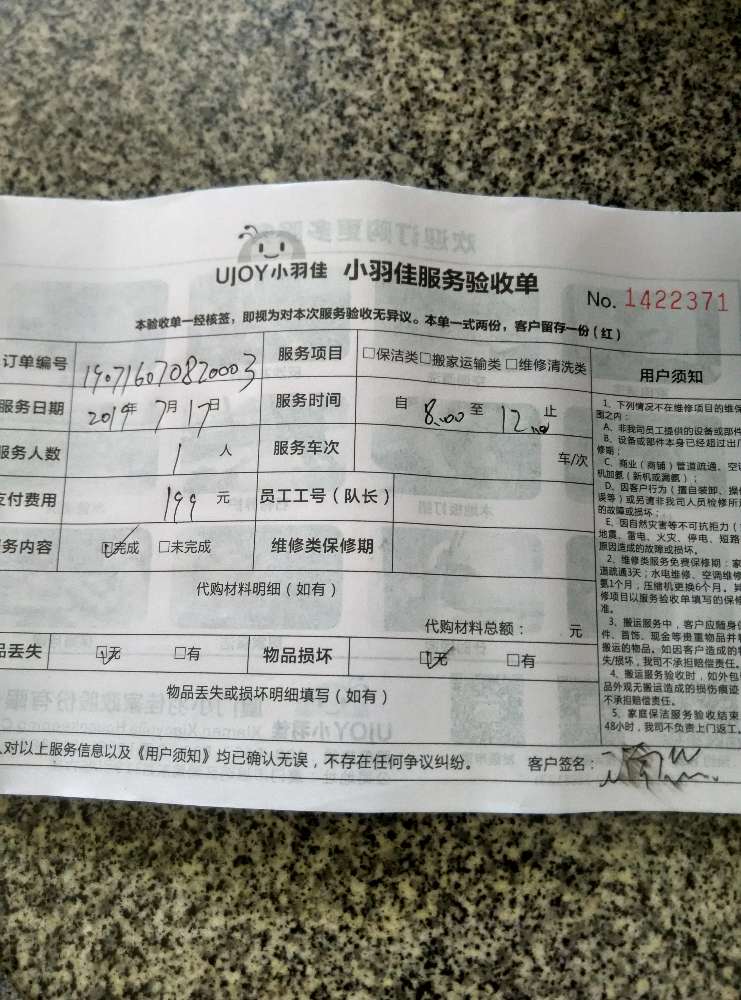 UJOY小羽佳 小羽佳服务验收单
No. 1422371
本验收单一经核签，即视为对本次服务验收无异议。本单一式两份，客户留存一份(红)
订单编号 190716070820003 服务项目 □保洁类□搬家运输类□维修清洗类
服务日期 2019年 7月17日 服务时间 自 8:00 至 12:00 止
服务人数 1 人 服务车次 车/次
支付费用 199 元 员工工号（队长）
务内容 ☑完成 □未完成 维修类保修期
代购材料明细（如有）
代购材料总额： 元
品丢失 ☑无 □有 物品损坏 ☑无 □有
物品丢失或损坏明细填写（如有）
人对以上服务信息以及《用户须知》均已确认无误，不存在任何争议纠纷。 客户签名：
用户须知
1、下列情况不在维修项目的维保
围之内：
A、非我司员工提供的设备或部件
B、设备或部件本身已经超过出厂
修期；
C、商业（商铺）管道疏通、空调
机加氨（新机或漏氨）；
D、因客户行为（擅自装卸、操作
误等）或另请非我司人员检修所造
的故障或损坏；
E、因自然灾害等不可抗拒力（
地震、雷电、火灾、停电、短路
原因造成的故障或损坏。
2、维修类服务免费保修期：家
道疏通3天；水电维修、空调维修
氨1个月，压缩机更换6个月。其
修项目以服务验收单填写的保修
准。
3、搬运服务中，客户应随身保
件、首饰、现金等贵重物品并
搬运的物品。如因客户造成的物
失/损坏，我司不承担赔偿责任。
4、搬运服务验收时，如外包
品外观无搬运造成的损伤痕迹
不承担赔偿责任。
5、家庭保洁服务验收结束
48小时，我司不负责上门返工。